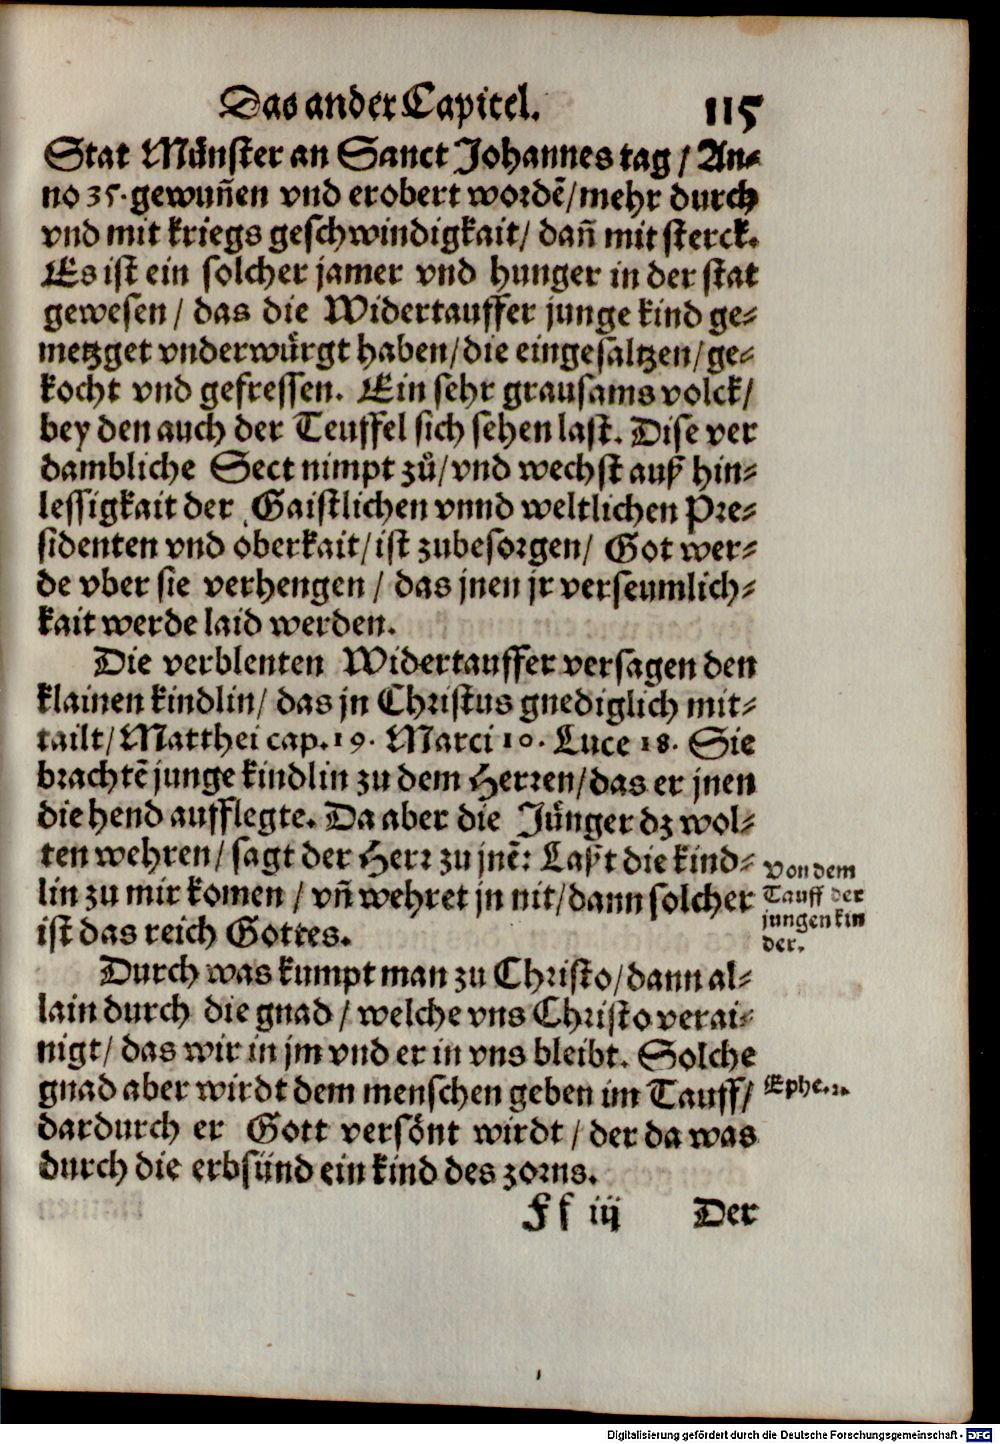 Das ander Capitel. 115
Stat Münster an Sanct Johannes tag / An⸗
no 35. gewuñen vnd erobert wordẽ / mehr durch
vnd mit kriegs geschwindigkait / dañ mit sterck.
Es ist ein solcher jamer vnd hunger in der stat
gewesen / das die Widertauffer junge kind ge⸗
metzget vnderwürgt haben / die eingesaltzen / ge⸗
kocht vnd gefressen. Ein sehr grausams volck /
bey den auch der Teuffel sich sehen last. Dise ver
dambliche Sect nimpt zů / vnd wechst auß hin⸗
lessigkait der Gaistlichen vnnd weltlichen Pre⸗
sidenten vnd oberkait / ist zubesorgen / Got wer⸗
de vber sie verhengen / das jnen jr verseumlich⸗
kait werde laid werden.
Die verblenten Widertauffer versagen den
klainen kindlin / das jn Christus gnediglich mit⸗
tailt / Matthei cap. 19. Marci 10. Luce 18. Sie
brachtẽ junge kindlin zu dem Herren / das er jnen
die hend aufflegte. Da aber die Jünger dz wol⸗
ten wehren / sagt der Herr zu jnẽ: Laßt die kind⸗
lin zu mir komen / vñ wehret jn nit / dann solcher
ist das reich Gottes.
Von dem
Tauff der
jungen kin
der.
Durch was kumpt man zu Christo / dann al⸗
lain durch die gnad / welche vns Christo verai⸗
nigt / das wir in jm vnd er in vns bleibt. Solche
gnad aber wirdt dem menschen geben im Tauff /
dardurch er Gott versönt wirdt / der da was
durch die erbsünd ein kind des zorns.
Ephe. 2.
Ff iij Der
Digitalisierung gefördert durch die Deutsche Forschungsgemeinschaft - DFG